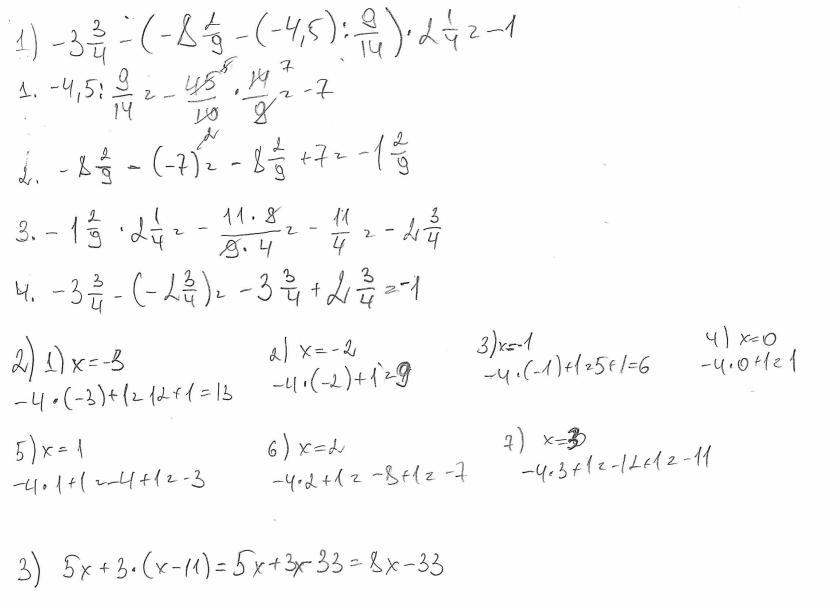 1) -3 3/4 - (-8 2/9 - (-4,5) : 9/14) · 2 1/4 = -1
1. -4,5 : 9/14 = - 45/10 · 14/9 = -7
5 7
2
2. -8 2/9 - (-7) = -8 2/9 + 7 = -1 2/9
3. -1 2/9 · 2 1/4 = - 11·9/9·4 = - 11/4 = -2 3/4
4. -3 3/4 - (-2 3/4) = -3 3/4 + 2 3/4 = -1
2) 1) x=-3 2) x=-2 3) x=-1 4) x=0
-4·(-3)+1=12+1=13 -4·(-2)+1=9 -4·(-1)+1=5+1=6 -4·0+1=1
5) x=1 6) x=2 7) x=3
-4·1+1=-4+1=-3 -4·2+1=-8+1=-7 -4·3+1=-12+1=-11
3) 5x+3·(x-11)=5x+3x-33=8x-33